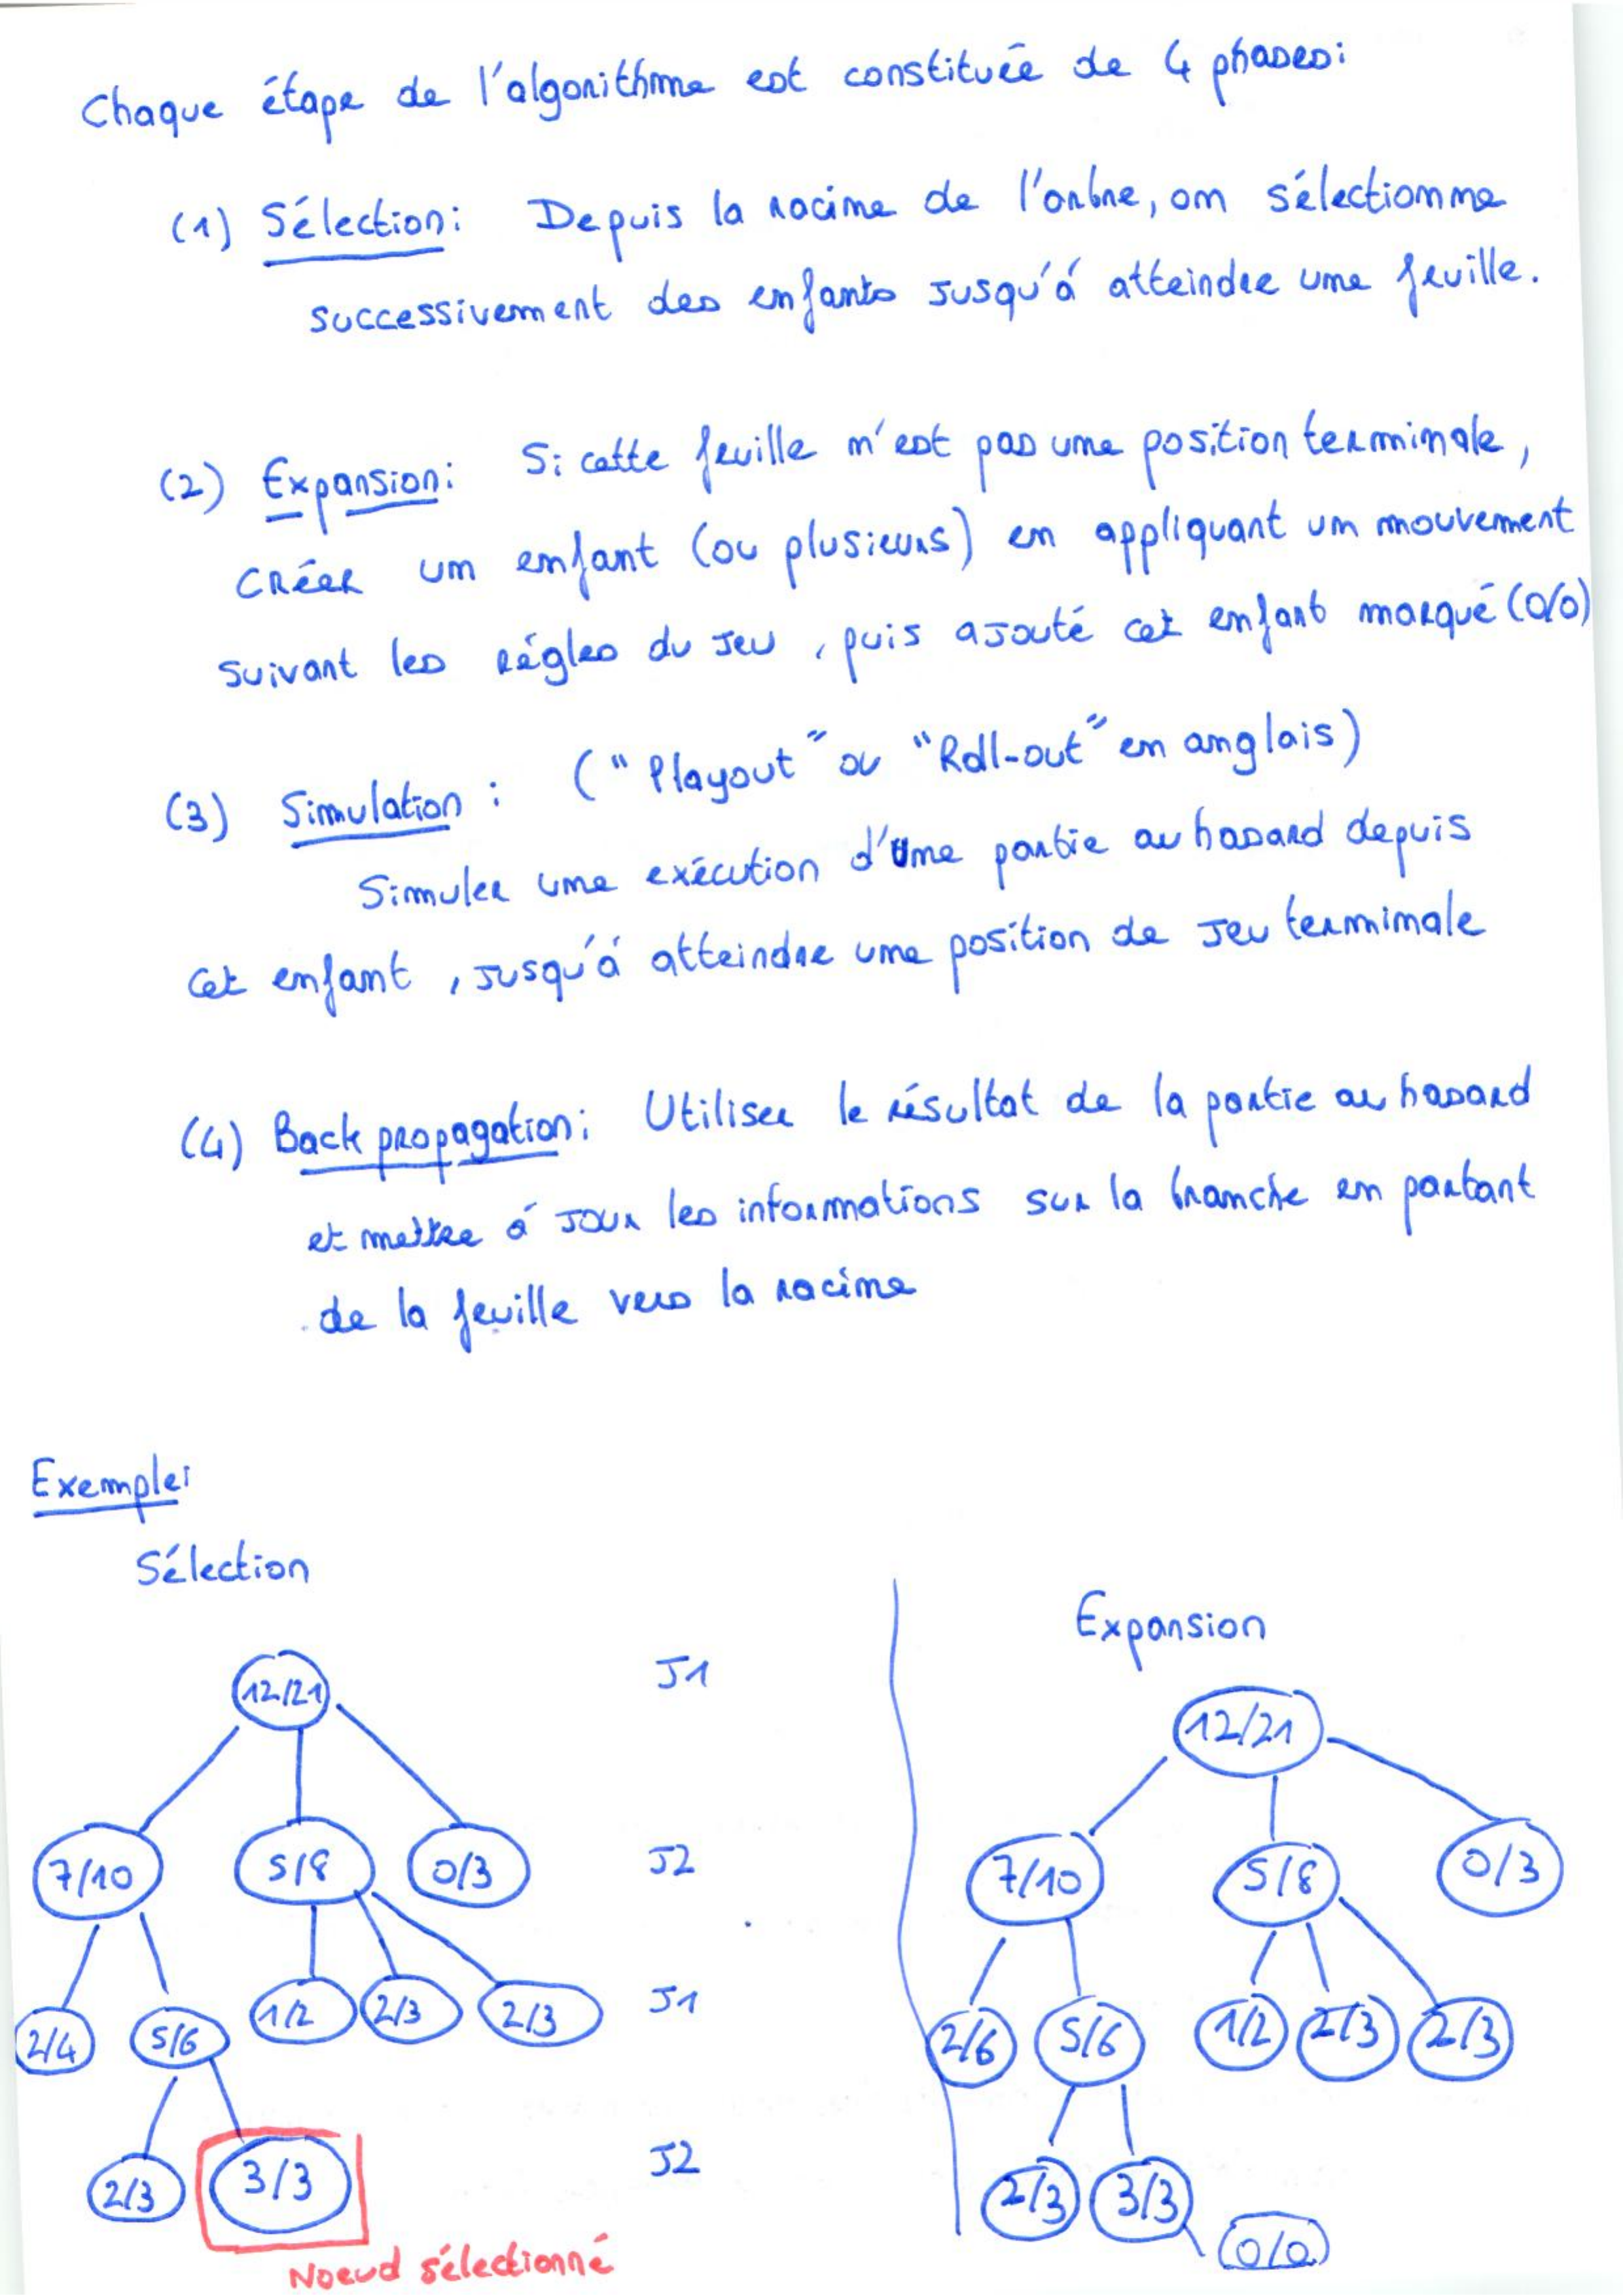 Chaque étape de l'algorithme est constituée de 4 phases:
(1) Sélection: Depuis la racine de l'arbre, on sélectionne
successivement des enfants jusqu'à atteindre une feuille.
(2) Expansion: Si cette feuille n'est pas une position terminale,
créer un enfant (ou plusieurs) en appliquant un mouvement
suivant les régles du jeu, puis ajouté cet enfant marqué (0/0)
(3) Simulation : ("Playout" ou "Roll-out" en anglais)
Simuler une exécution d'une partie au hasard depuis
cet enfant, jusqu'à atteindre une position de jeu terminale
(4) Back propagation: Utiliser le résultat de la partie au hasard
et mettre à jour les informations sur la branche en partant
de la feuille vers la racine
Exemple:
Sélection
12/21 J1
7/10 5/8 0/3 J2
2/4 5/6 1/2 2/3 2/3 J1
2/3 3/3 J2
Noeud sélectionné
Expansion
12/21
7/10 5/8 0/3
2/6 5/6 1/2 2/3 2/3
2/3 3/3
0/0